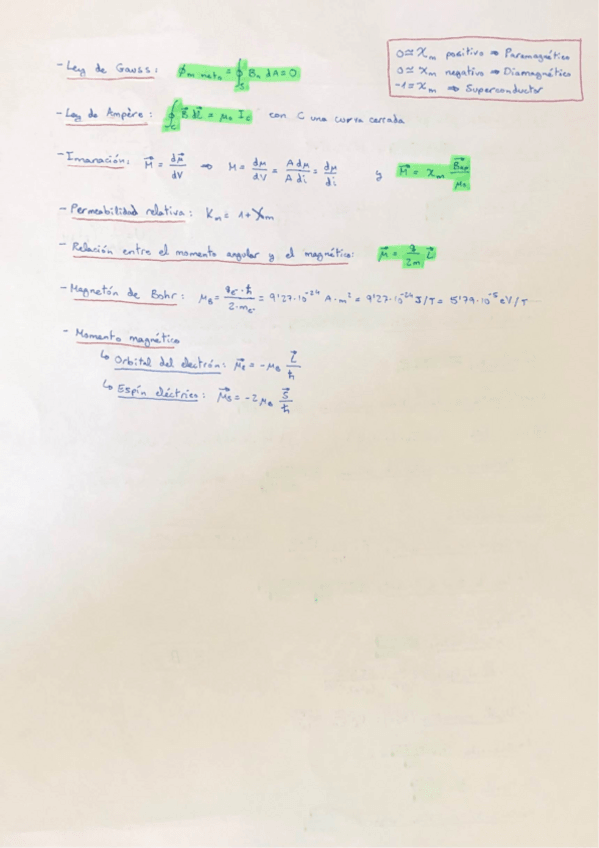 - Ley de Gauss: ϕm neto = ∮S Bn dA = 0
0 ≃ χm positivo ⇒ Paramagnético
0 ≃ χm negativo ⇒ Diamagnético
-1 = χm ⇒ Superconductor
- Ley de Ampère: ∮C B⃗ dl⃗ = μ0 Ic con C una curva cerrada
- Imanación: M⃗ = dμ⃗/dV ⇒ M = dμ/dV = A dμ/A di = dμ/di y M⃗ = χm B⃗ap/μ0
- Permeabilidad relativa: Km = 1 + χm
- Relación entre el momento angular y el magnético: μ⃗ = q/2m L⃗
- Magnetón de Bohr: μB = qe·ħ/2·me = 9'27·10^-24 A·m² = 9'27·10^-24 J/T = 5'79·10^-5 eV/T
- Momento magnético
↳ Orbital del electrón: μ⃗l = -μB L⃗/ħ
↳ Espín eléctrico: μ⃗s = -2 μB S⃗/ħ